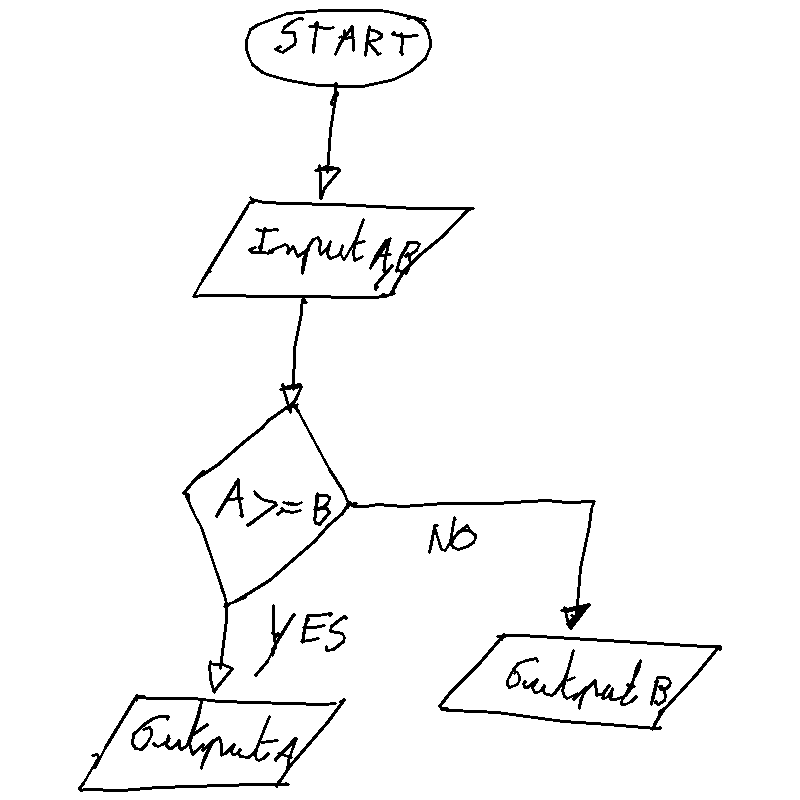 START
Input A,B
A>=B
NO
YES
Output B
Output A